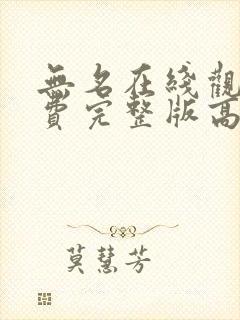 無名在綫觀
費完整版高
莫慧芳